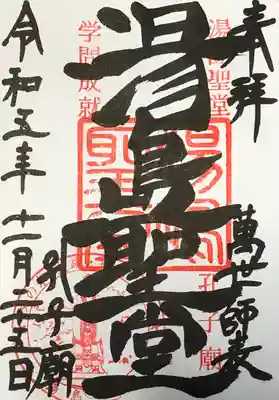 奉拝
萬世師表
湯島聖堂
孔子廟
令和五年十一月二十五日
湯島聖堂
孔子廟
学問成就